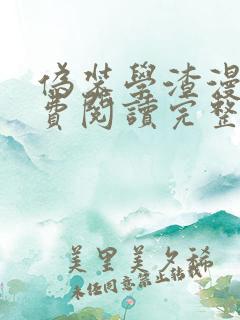 偽裝學渣漫
費閱讀完整
美里美夕稀
未經同意禁止轉載